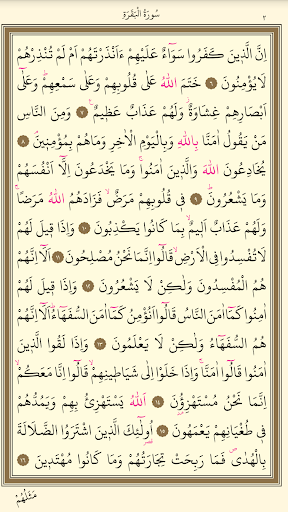 سُورَةُ الْبَقَرَةِ ٢
اِنَّ الَّذٖينَ كَفَرُوا سَوَٓاءٌ عَلَيْهِمْ ءَاَنْذَرْتَهُمْ اَمْ لَمْ تُنْذِرْهُمْ
لَا يُؤْمِنُونَ ٦ خَتَمَ اللّٰهُ عَلٰى قُلُوبِهِمْ وَعَلٰى سَمْعِهِمْ وَعَلٰٓى
اَبْصَارِهِمْ غِشَاوَةٌ وَلَهُمْ عَذَابٌ عَظٖيمٌ ٧ وَمِنَ النَّاسِ
مَنْ يَقُولُ اٰمَنَّا بِاللّٰهِ وَبِالْيَوْمِ الْاٰخِرِ وَمَا هُمْ بِمُؤْمِنٖينَ ٨
يُخَادِعُونَ اللّٰهَ وَالَّذٖينَ اٰمَنُوا وَمَا يَخْدَعُونَ اِلَّٓا اَنْفُسَهُمْ
وَمَا يَشْعُرُونَ ٩ فٖى قُلُوبِهِمْ مَرَضٌ فَزَادَهُمُ اللّٰهُ مَرَضًا
وَلَهُمْ عَذَابٌ اَلٖيمٌ بِمَا كَانُوا يَكْذِبُونَ ١٠ وَاِذَا قٖيلَ لَهُمْ
لَا تُفْسِدُوا فِى الْاَرْضِ قَالُٓوا اِنَّمَا نَحْنُ مُصْلِحُونَ ١١ اَلَٓا اِنَّهُمْ
هُمُ الْمُفْسِدُونَ وَلٰكِنْ لَا يَشْعُرُونَ ١٢ وَاِذَا قٖيلَ لَهُمْ
اٰمِنُوا كَمَٓا اٰمَنَ النَّاسُ قَالُٓوا اَنُؤْمِنُ كَمَٓا اٰمَنَ السُّفَهَٓاءُ اَلَٓا اِنَّهُمْ
هُمُ السُّفَهَٓاءُ وَلٰكِنْ لَا يَعْلَمُونَ ١٣ وَاِذَا لَقُوا الَّذٖينَ
اٰمَنُوا قَالُٓوا اٰمَنَّا وَاِذَا خَلَوْا اِلٰى شَيَاطٖينِهِمْ قَالُٓوا اِنَّا مَعَكُمْ
اِنَّمَا نَحْنُ مُسْتَهْزِؤُنَ ١٤ اَللّٰهُ يَسْتَهْزِئُ بِهِمْ وَيَمُدُّهُمْ
فٖى طُغْيَانِهِمْ يَعْمَهُونَ ١٥ اُولٰٓئِكَ الَّذٖينَ اشْتَرَوُا الضَّلَالَةَ
بِالْهُدٰى فَمَا رَبِحَتْ تِجَارَتُهُمْ وَمَا كَانُوا مُهْتَدٖينَ ١٦
مَثَلُهُمْ